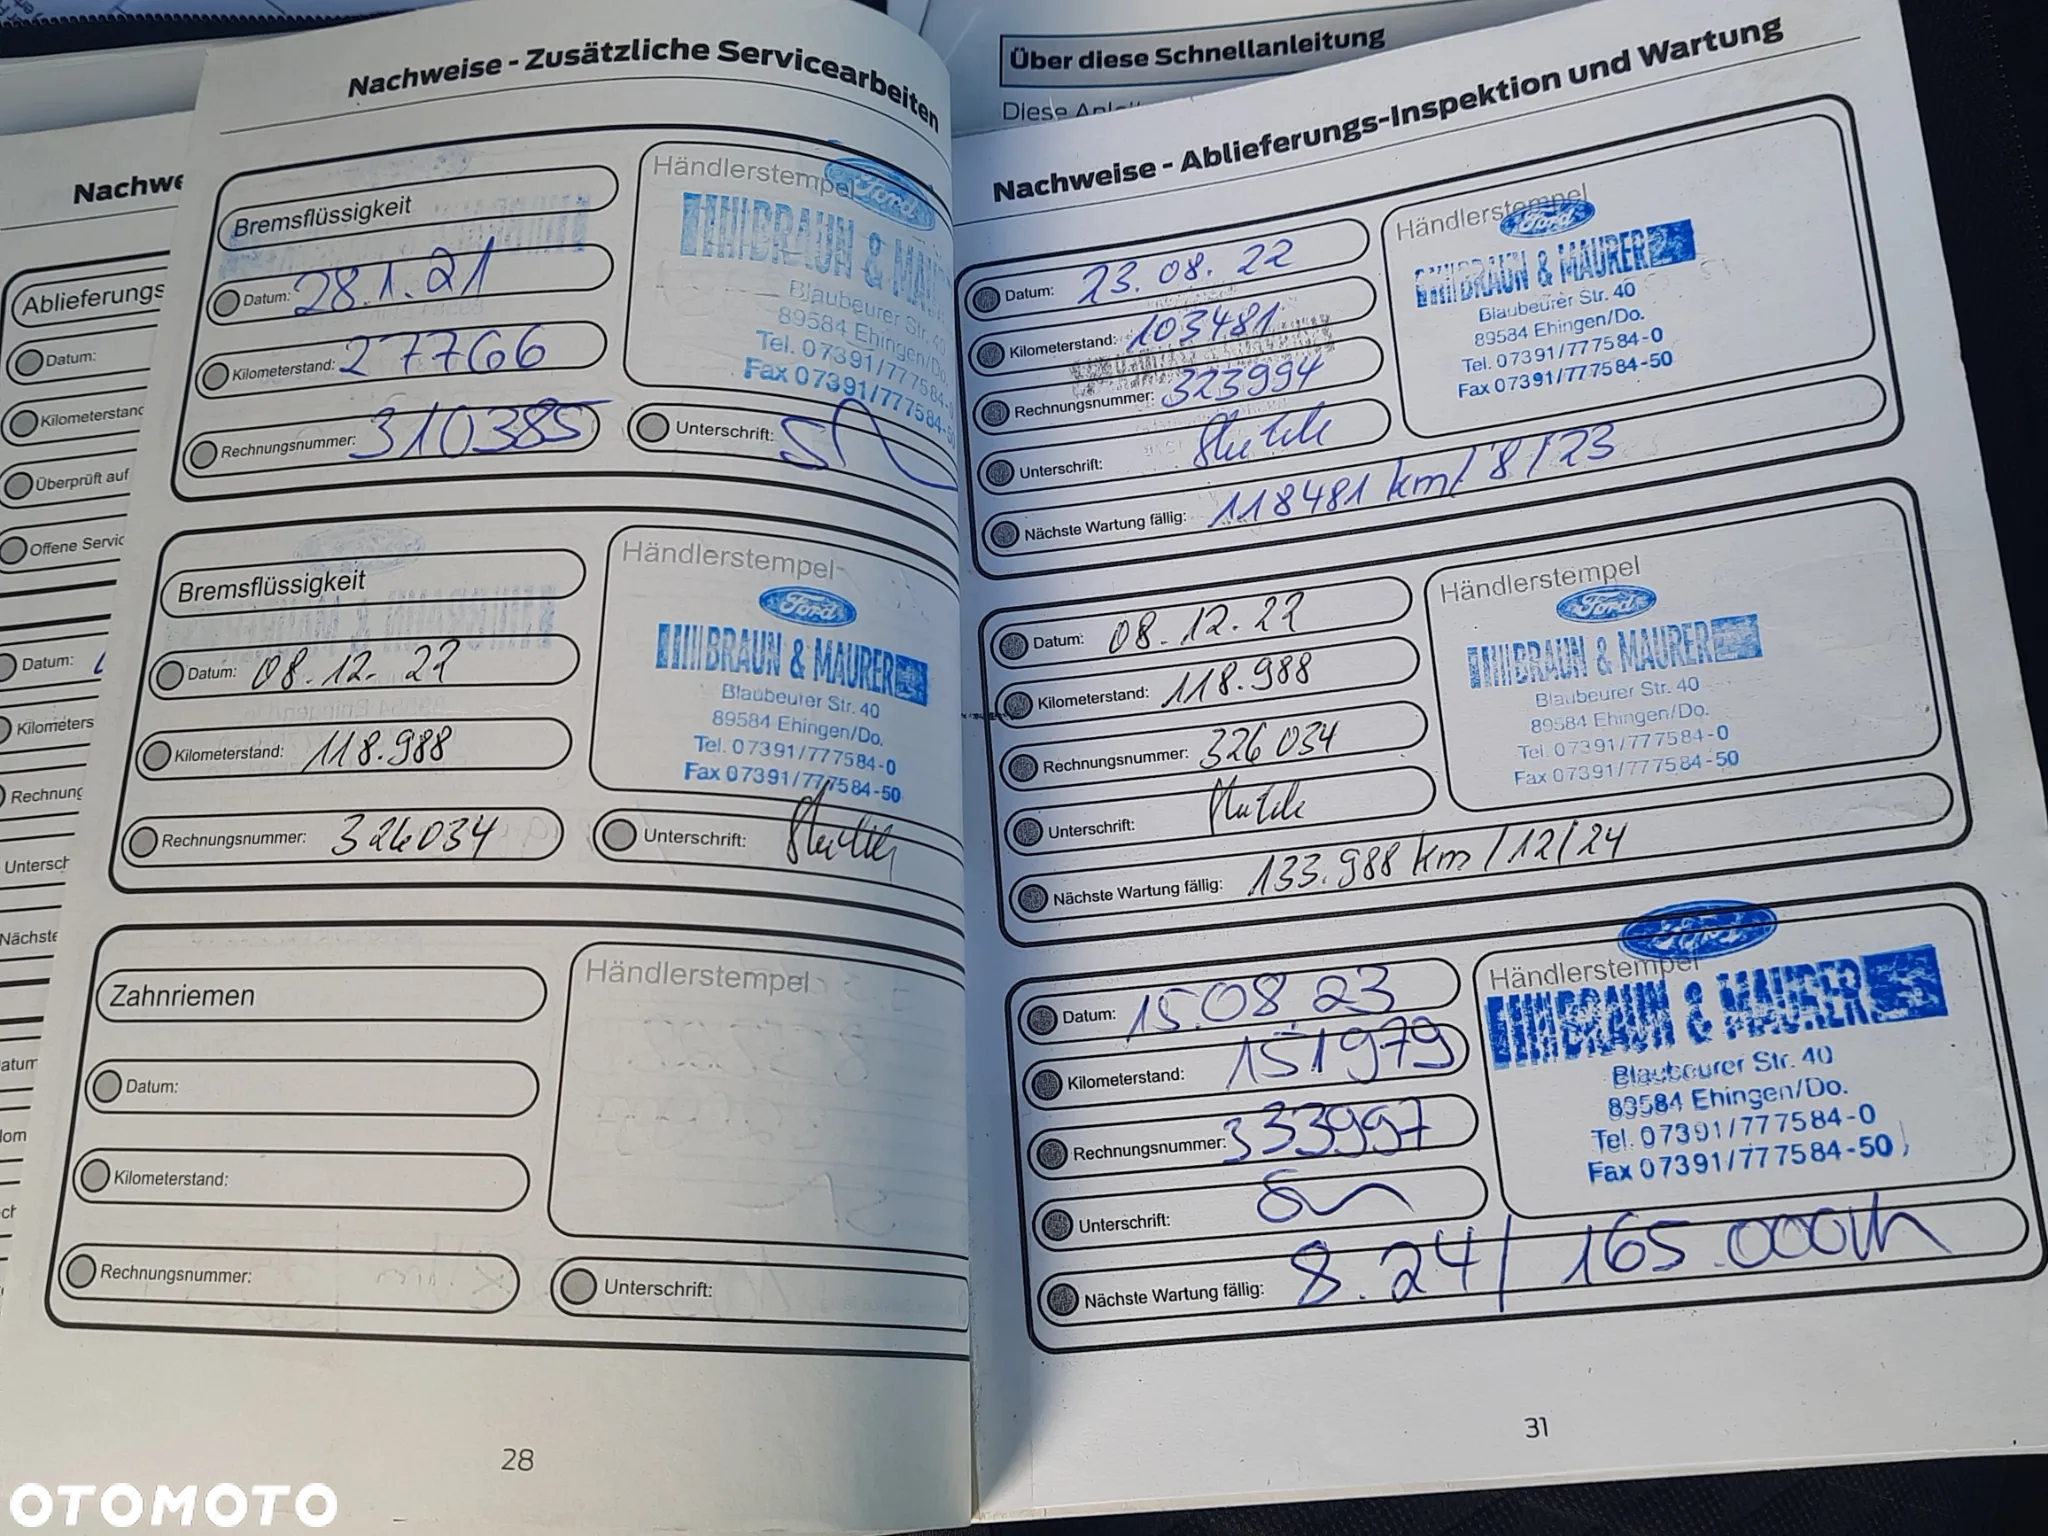 Nachwe
Ablieferungs
Datum:
Kilometerstand
Überprüft auf
Offene Servic
Datum:
Kilometers
Rechnung
Untersch
Nächste
Nachweise - Zusätzliche Servicearbeiten
Bremsflüssigkeit
Datum: 28.1.21
Kilometerstand: 27766
Rechnungsnummer: 310385
Händlerstempel
Ford
BRAUN & MAU
Blaubeurer Str. 40
89584 Ehingen/Do.
Tel. 07391/777584-0
Fax 07391/777584-50
Unterschrift:
Bremsflüssigkeit
Datum: 08.12.22
Kilometerstand: 118.988
Rechnungsnummer: 326034
Händlerstempel
Ford
BRAUN & MAURER
Blaubeurer Str. 40
89584 Ehingen/Do.
Tel. 07391/777584-0
Fax 07391/777584-50
Unterschrift:
Zahnriemen
Datum:
Kilometerstand:
Rechnungsnummer:
Händlerstempel
Unterschrift:
28
Über diese Schnellanleitung
Nachweise - Ablieferungs-Inspektion und Wartung
Datum: 23.08.22
Kilometerstand: 103481
Rechnungsnummer: 323994
Unterschrift:
Nächste Wartung fällig: 118481 km / 8 / 23
Händlerstempel
Ford
BRAUN & MAURER
Blaubeurer Str. 40
89584 Ehingen/Do.
Tel. 07391/777584-0
Fax 07391/777584-50
Datum: 08.12.22
Kilometerstand: 118.988
Rechnungsnummer: 326034
Unterschrift:
Nächste Wartung fällig: 133.988 km / 12 / 24
Händlerstempel
Ford
BRAUN & MAURER
Blaubeurer Str. 40
89584 Ehingen/Do.
Tel. 07391/777584-0
Fax 07391/777584-50
Datum: 15.08 23
Kilometerstand: 151979
Rechnungsnummer: 333997
Unterschrift:
Nächste Wartung fällig: 8.24 / 165.000
Händlerstempel
Ford
BRAUN & MAURER
Blaubeurer Str. 40
89584 Ehingen/Do.
Tel. 07391/777584-0
Fax 07391/777584-50
31
OTOMOTO